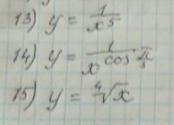 13) y = 1/x⁵
14) y = 1/x^(cos π/3)
15) y = ⁴√x